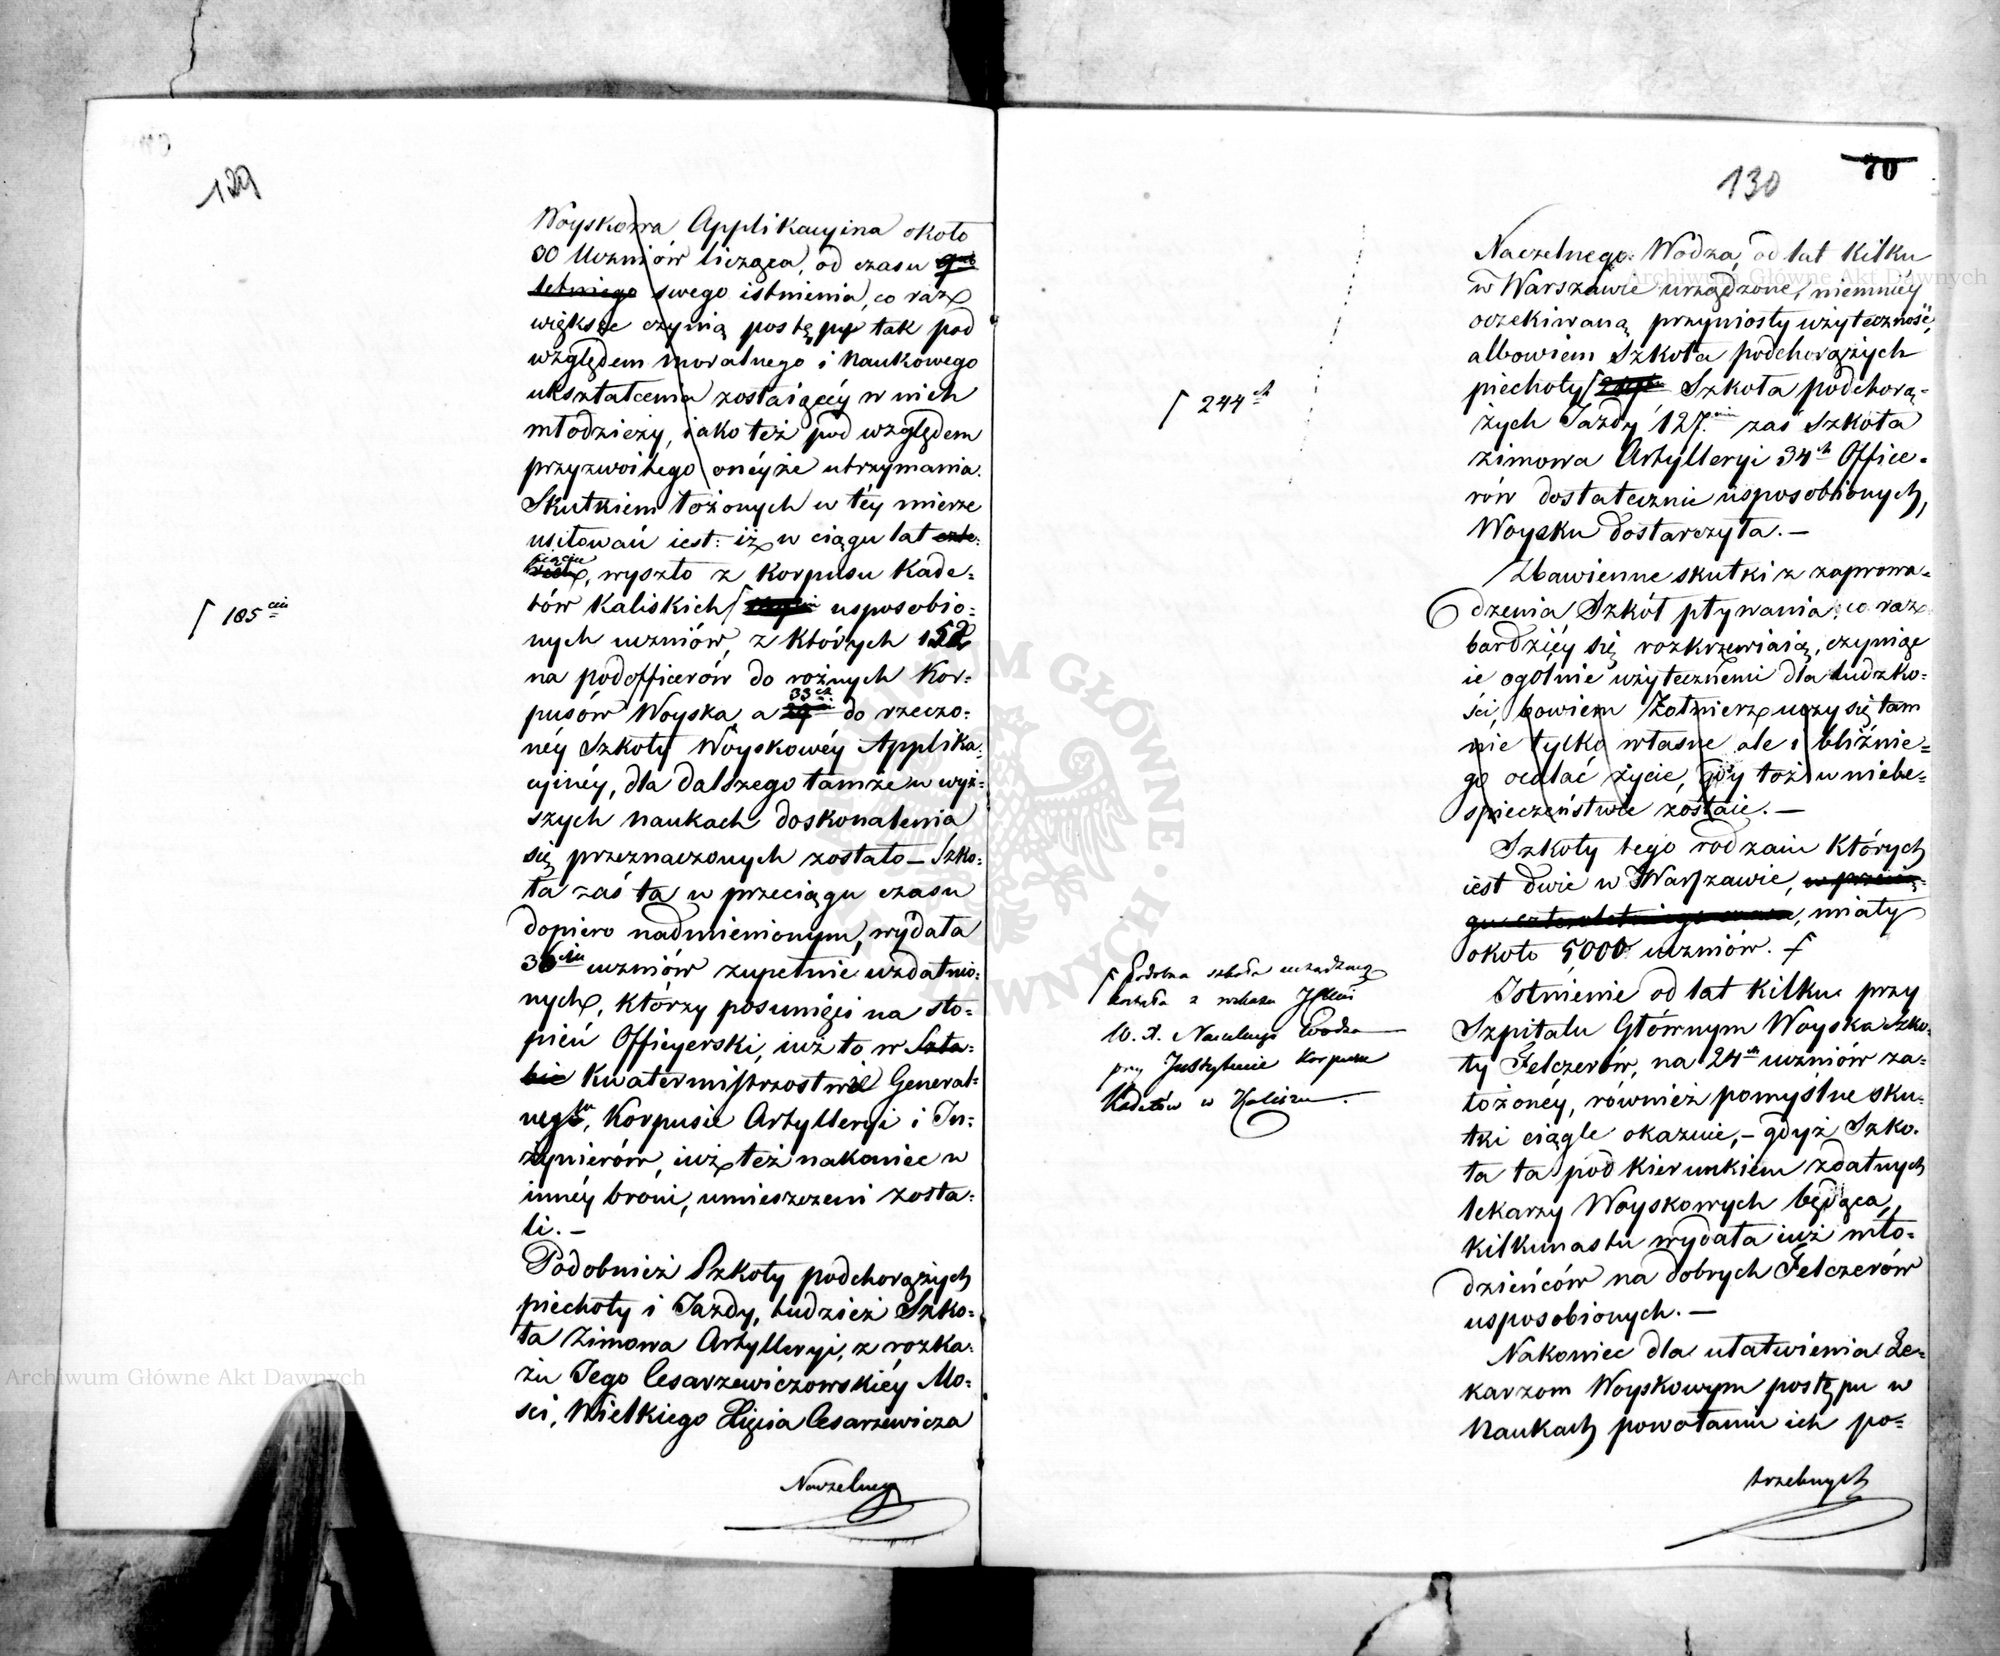 129
Woyskowa Applikacyina około
30 Uczniów licząca, od czasu
letniego swego istnienia, co raz
większe czynią postępy tak pod
względem moralnego i naukowego
ukształcenia zostaiącéy w nich
młodzieży, iako też pod względem
przyzwoitego onéyże utrzymania.
Skutkiem łożonych w téy mierze
usiłowań iest: iż w ciągu lat czte-
rech pięciu, wyszło z Korpusu Kade-
tów Kaliskich usposobio-
nych uczniów, z których 152
na podofficerów do rożnych Kor-
pusów Woyska, a 29 33ch do rzeczo-
néy Szkoły Woyskowéy Applika-
cyinéy, dla dalszego tamże w wyż-
szych naukach doskonalenia
się przeznaczonych zostało – Szko-
ła zaś ta w przeciągu czasu
dopiero nadmienionym, wydała
36ciu uczniów zupełnie uzdatnio-
nych, którzy posunięci na sto-
pień Officyerski, iuż to w Szta-
bie Kwatermistrzostwie General-
nego, Korpusie Artylleryi i In-
żynierów, iuż też nakoniec w
innéy broni, umieszczeni zosta-
li. –
Podobnież Szkoły podchorążych
piechoty i Jazdy, tudzież Szko-
ła Zimowa Artylleryi, z rozka-
zu Jego Cesarzewiczowskiéy Mo-
ści, Wielkiego Xięcia Cesarzewicza
Naczelnego
185ciu
130
70
Naczelnego Wodza, od lat kilku
w Warszawie urządzone, niemniey
oczekiwaną przyniosły użyteczność,
albowiem Szkoła podchorążych
piechoty Szkoła podchorą-
żych Jazdy 127 zaś Szkoła
zimowa Artylleryi 34ch Office-
rów dostatecznie usposobionych,
Woysku dostarczyła. –
Zbawienne skutki z zaprowa-
dzenia Szkół pływania, co raz
bardziéy się rozkrzewiaią, czyniąc
ie ogólnie użytecznémi dla ludzko-
ści, bowiem Żołnierz uczy się tam
nie tylko własne ale i bliźnie-
go ocalać życie, gdy toż w niebe-
spieczeństwie zostaie. –
Szkoły tego rodzaiu których
iest dwie w Warszawie, w przecią-
gu czteroletniego czasu, miały
około 5000 uczniów.
Istnienie od lat kilku przy
Szpitalu Głównym Woyska Szko-
ły Felczerów, na 24ch uczniów za-
łożonéy, również pomyślne sku-
tki ciągle okazuie, – gdyż Szko-
ła ta pod kierunkiem zdatnych
lekarzy Woyskowych będąca,
kilkunastu wydała iuż mło-
dzieńców na dobrych Felczerów
usposobionych. –
Nakoniec dla ułatwienia Le-
karzom Woyskowym postępu w
Naukach powołaniu ich po-
trzebnych
244ch
Podobna szkoła urządzoną
została z rozkazu JCMci
W. X. Naczelnego Wodza
przy Instytucie Korpusu
Kadetów w Kaliszu.
Archiwum Główne Akt Dawnych
Archiwum Główne Akt Dawnych